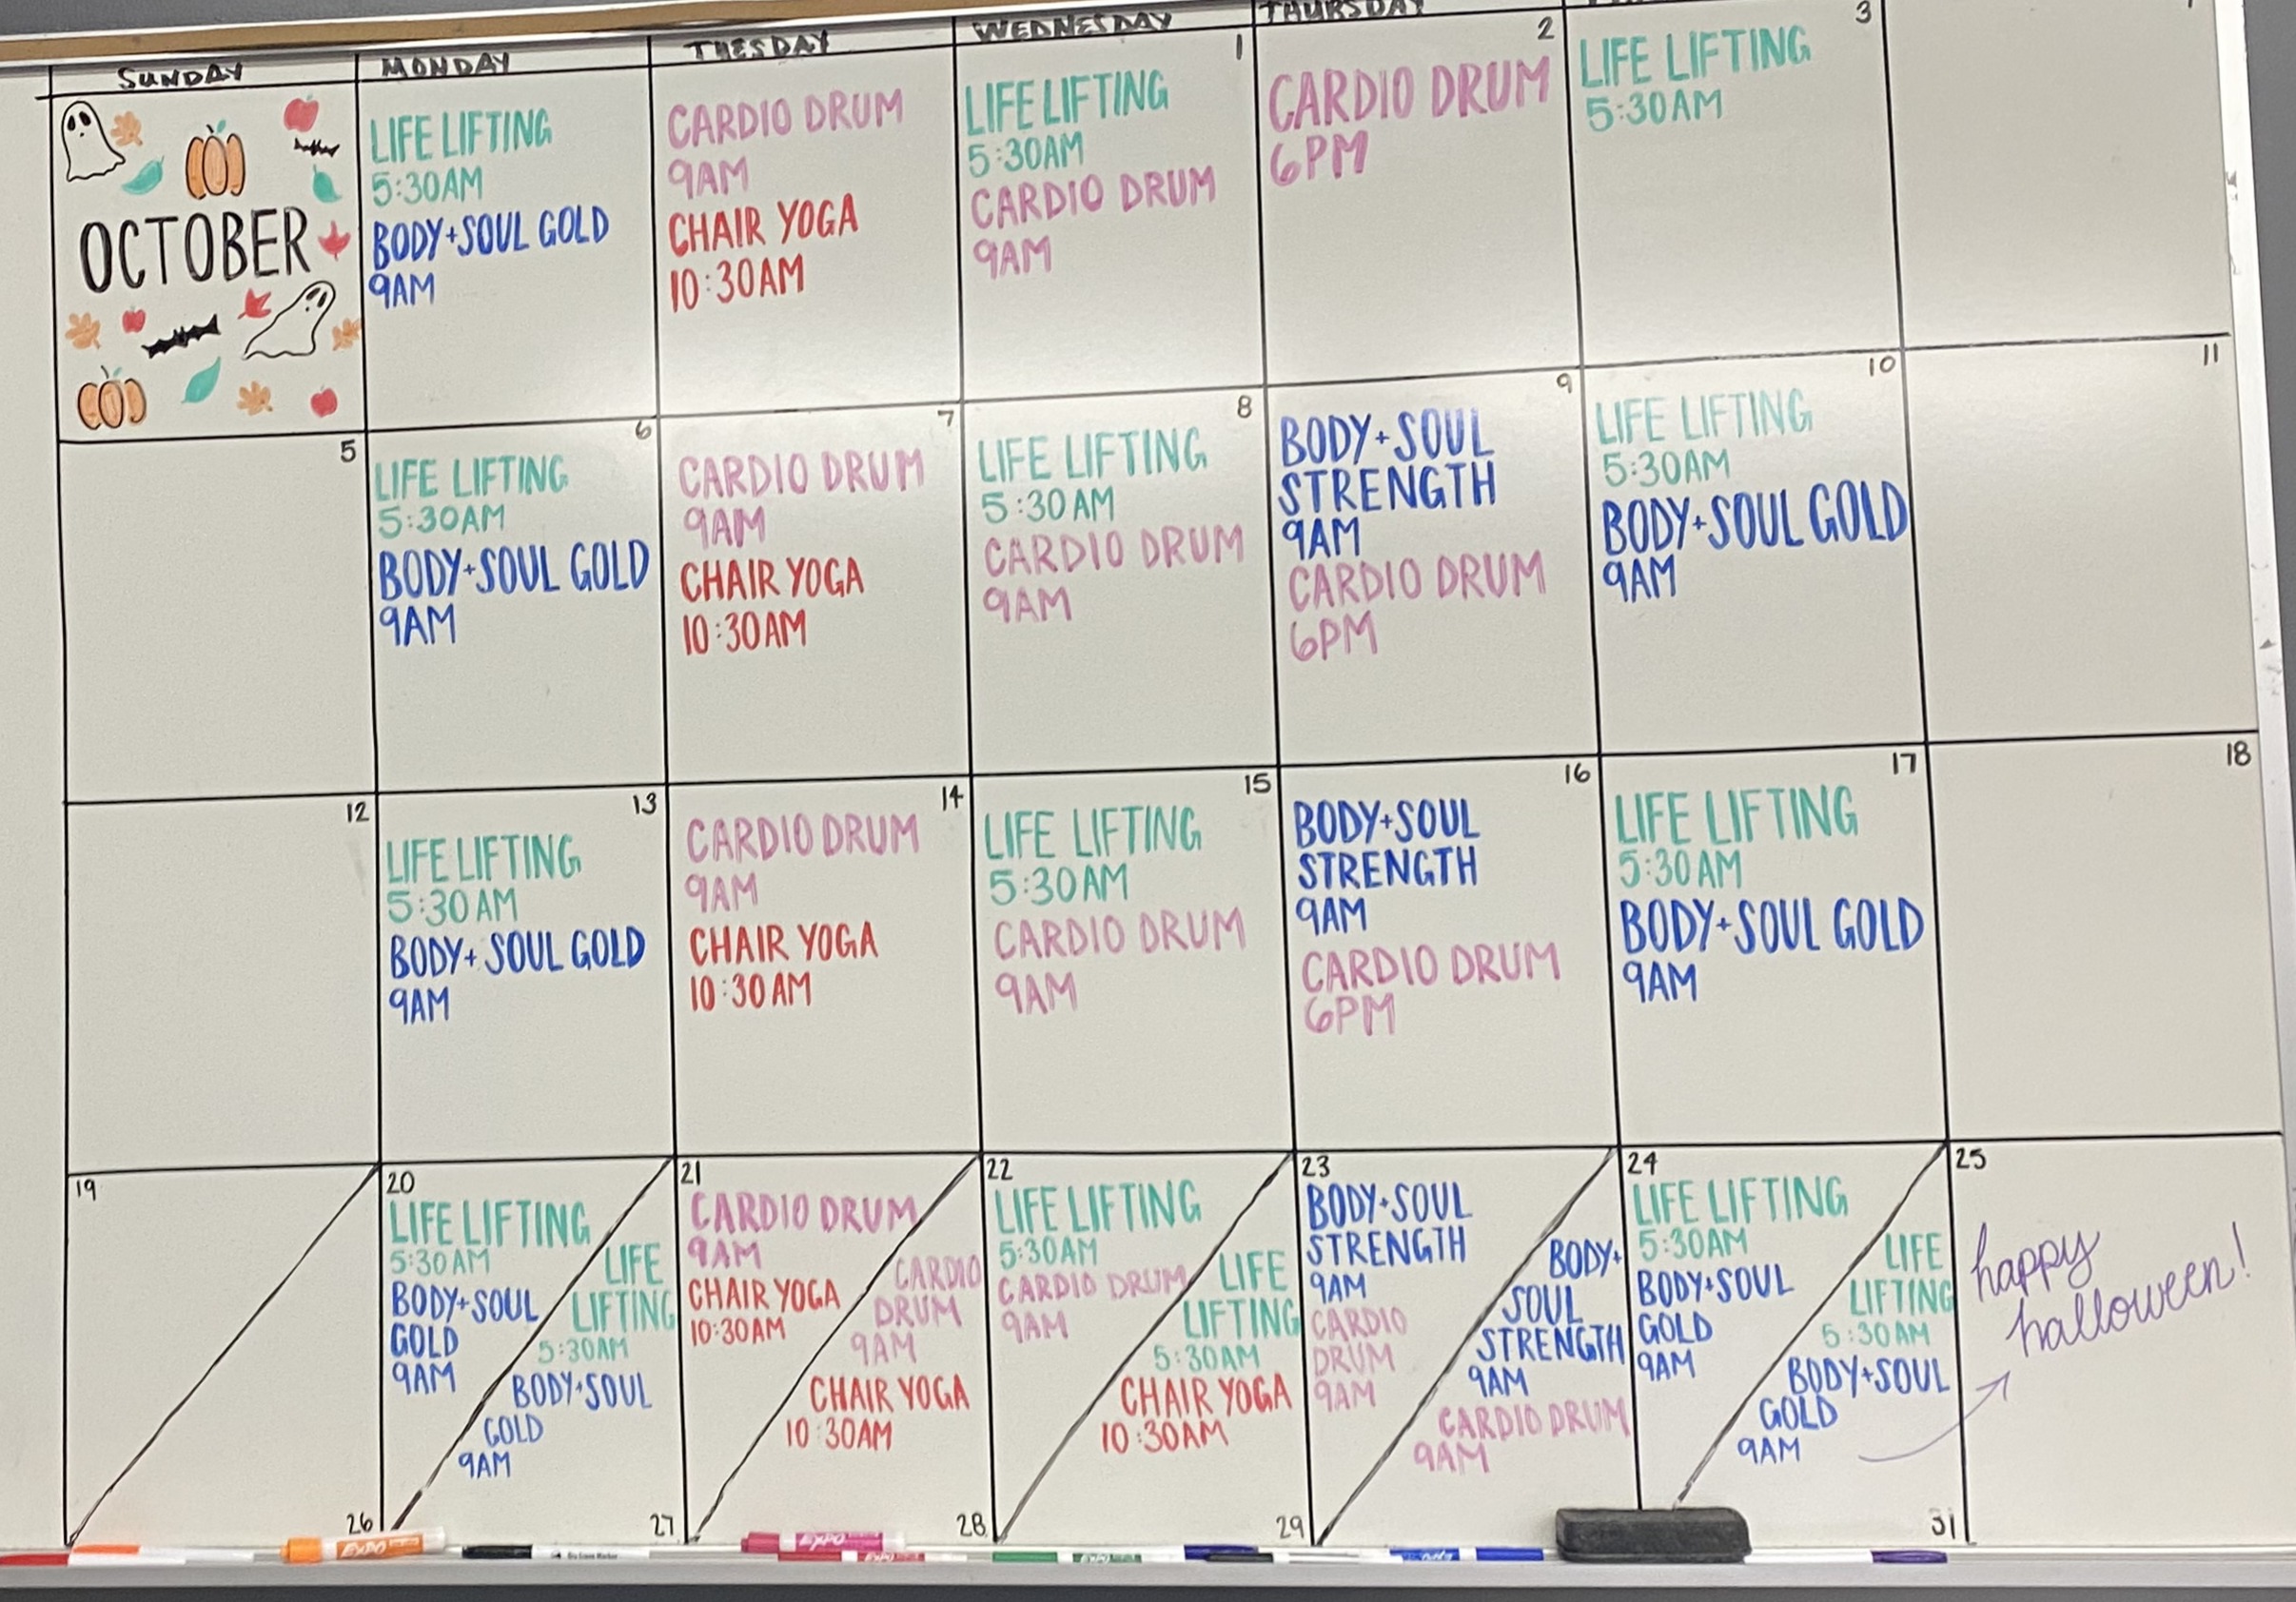 SUNDAY
MONDAY
TUESDAY
WEDNESDAY
THURSDAY
OCTOBER
LIFE LIFTING
5:30AM
BODY+SOUL GOLD
9AM
CARDIO DRUM
9AM
CHAIR YOGA
10:30AM
1
LIFE LIFTING
5:30AM
CARDIO DRUM
9AM
2
CARDIO DRUM
6PM
3
LIFE LIFTING
5:30AM
5
6
LIFE LIFTING
5:30AM
BODY+SOUL GOLD
9AM
7
CARDIO DRUM
9AM
CHAIR YOGA
10:30AM
8
LIFE LIFTING
5:30AM
CARDIO DRUM
9AM
9
BODY+SOUL
STRENGTH
9AM
CARDIO DRUM
6PM
10
LIFE LIFTING
5:30AM
BODY+SOUL GOLD
9AM
11
12
13
LIFE LIFTING
5:30AM
BODY+SOUL GOLD
9AM
14
CARDIO DRUM
9AM
CHAIR YOGA
10:30AM
15
LIFE LIFTING
5:30AM
CARDIO DRUM
9AM
16
BODY+SOUL
STRENGTH
9AM
CARDIO DRUM
6PM
17
LIFE LIFTING
5:30AM
BODY+SOUL GOLD
9AM
18
19
26
20
LIFE LIFTING
5:30AM
BODY+SOUL
GOLD
9AM
LIFE
LIFTING
5:30AM
BODY+SOUL
GOLD
9AM
27
21
CARDIO DRUM
9AM
CHAIR YOGA
10:30AM
CARDIO
DRUM
9AM
CHAIR YOGA
10:30AM
28
22
LIFE LIFTING
5:30AM
CARDIO DRUM
9AM
LIFE
LIFTING
5:30AM
CHAIR YOGA
10:30AM
29
23
BODY+SOUL
STRENGTH
9AM
CARDIO
DRUM
9AM
BODY+
SOUL
STRENGTH
9AM
CARDIO DRUM
9AM
24
LIFE LIFTING
5:30AM
BODY+SOUL
GOLD
9AM
LIFE
LIFTING
5:30AM
BODY+SOUL
GOLD
9AM
31
25
happy
halloween!
EXPO
EXPO
EXPO
EXPO